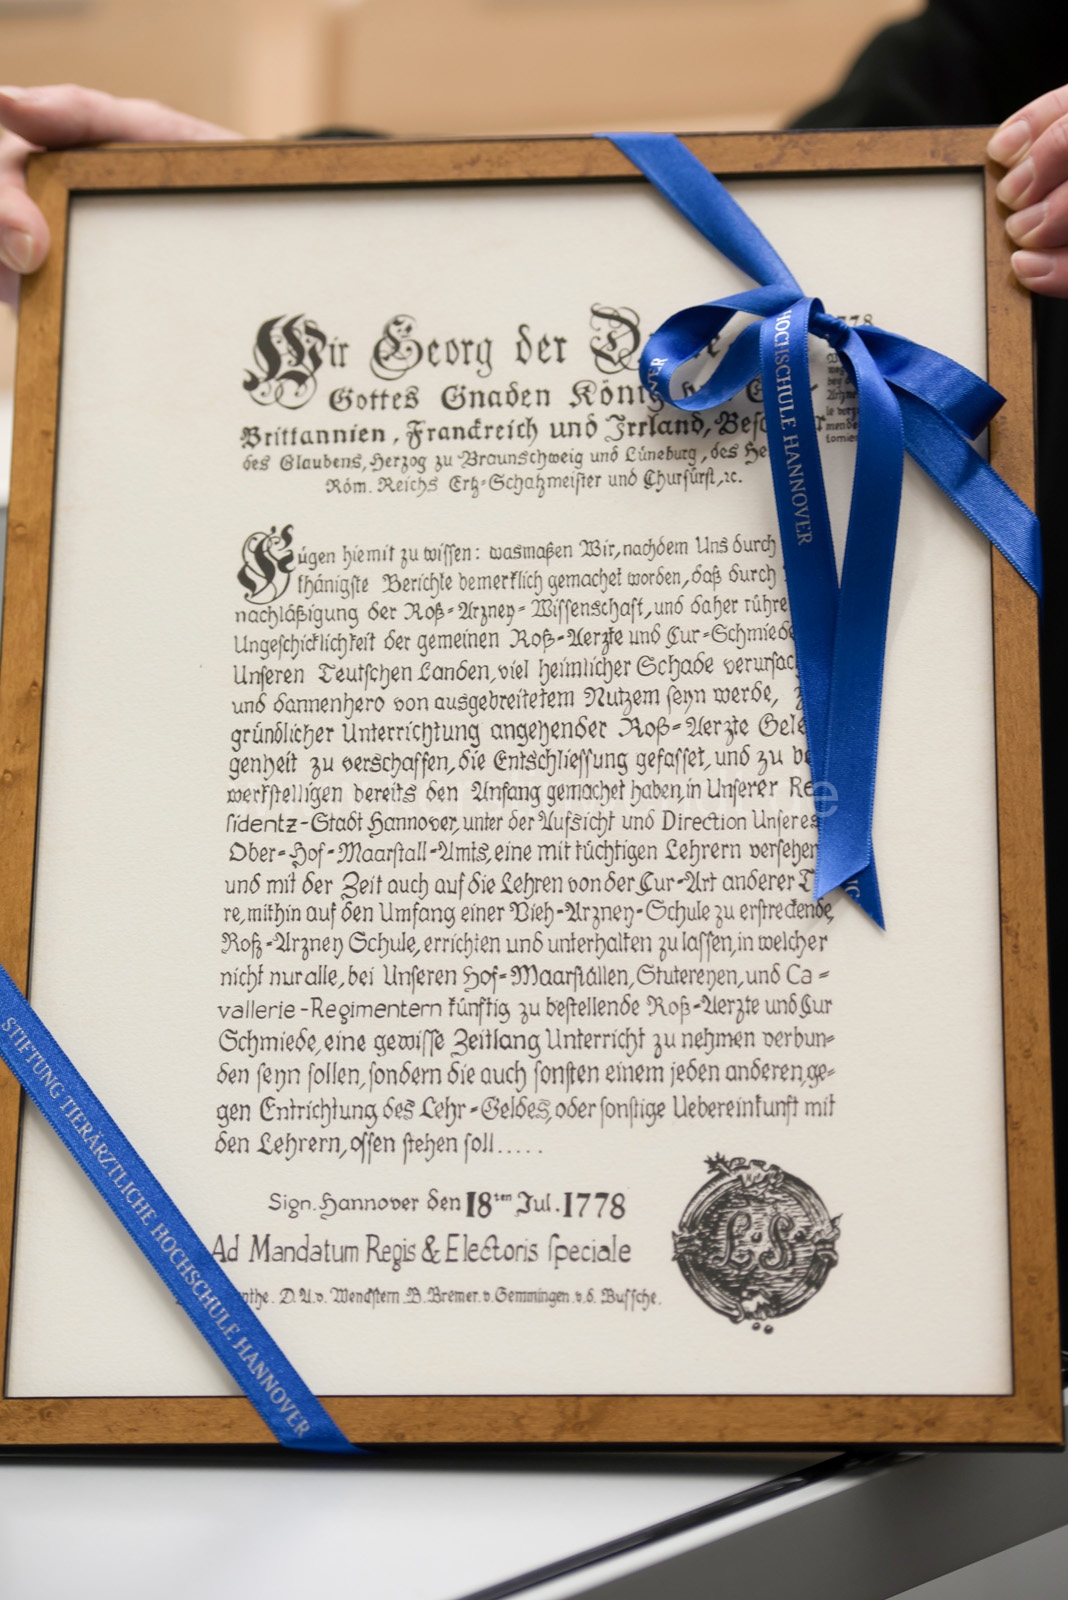 Wir Georg der
Gottes Gnaden König
Brittannien, Franckreich und Irrland,
des Glaubens, Herzog zu Braunschweig und Lüneburg, des
Röm. Reichs Ertz-Schatzmeister und Churfürst, ꝛc.
Fügen hiemit zu wissen: wasmaßen Wir, nachdem Uns durch
thänigste Berichte bemerklich gemachet worden, daß durch
nachläßigung der Roß-Arzney-Wissenschaft, und daher rühre
Ungeschicklichkeit der gemeinen Roß-Aerzte und Cur-Schmiede
Unseren Teutschen Landen, viel heimlicher Schade verursac
und dannenhero von ausgebreitetem Nutzem seyn werde,
gründlicher Unterrichtung angehender Roß-Aerzte Gele
genheit zu verschaffen, die Entschliessung gefasset, und zu be
werkstelligen bereits den Anfang gemachet haben, in Unserer Re
sidentz-Stadt Hannover, unter der Aufsicht und Direction Unseres
Ober-Hof-Maarstall-Amts, eine mit tüchtigen Lehrern versehen
und mit der Zeit auch auf die Lehren von der Cur-Art anderer T
re, mithin auf den Umfang einer Vieh-Arzney-Schule zu erstreckende,
Roß-Arzney Schule, errichten und unterhalten zu lassen, in welcher
nicht nur alle, bei Unseren Hof-Maarställen, Stutereyen, und Ca =
vallerie-Regimentern künftig zu bestellende Roß-Aerzte und Cur
Schmiede, eine gewisse Zeitlang Unterricht zu nehmen verbun=
den seyn sollen, sondern die auch sonsten einem jeden anderen, ge=
gen Entrichtung des Lehr-Geldes, oder sonstige Uebereinkunft mit
den Lehrern, offen stehen soll.....
Sign. Hannover den 18ten Jul. 1778
Ad Mandatum Regis & Electoris speciale
D. U. v. Wenckstern. B. Bremer. v. Gemmingen. v. d. Bussche.
L. S.
HOCHSCHULE HANNOVER
STIFTUNG TIERÄRZTLICHE HOCHSCHULE HANNOVER